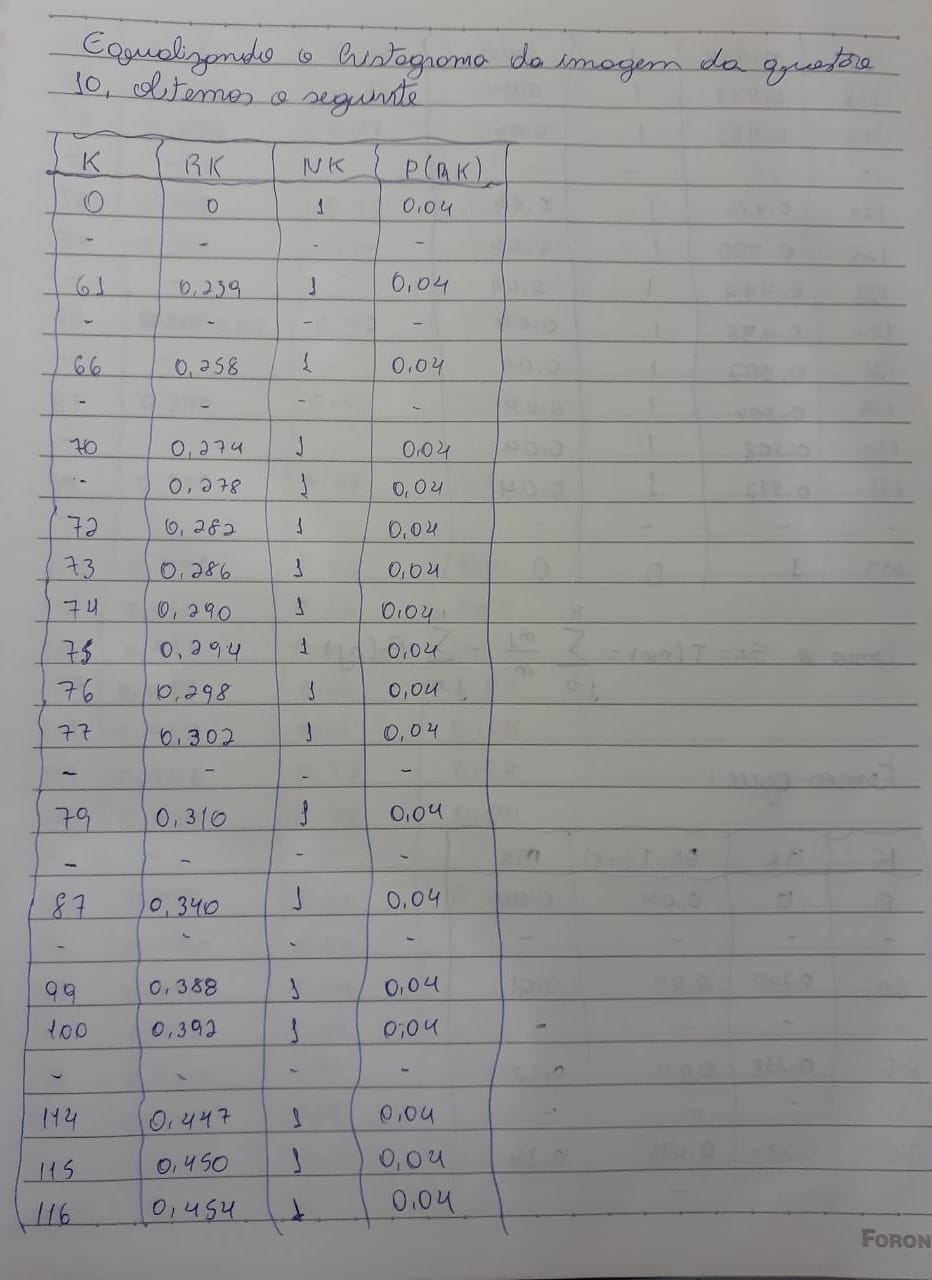 Equalizando o histograma da imagem da questão
10, obtemos o seguinte
K RK NK P(RK)
0 0 1 0.04
- - - -
61 0,239 1 0,04
- - - -
66 0,258 1 0,04
- - - -
70 0,274 1 0,04
- 0,278 1 0,04
72 0,282 1 0,04
73 0,286 1 0,04
74 0,290 1 0,04
75 0,294 1 0,04
76 0,298 1 0,04
77 0,302 1 0,04
- - - -
79 0,310 1 0,04
- - - -
87 0,340 1 0,04
- - - -
99 0,388 1 0,04
100 0,392 1 0,04
- - - -
114 0,447 1 0,04
115 0,450 1 0,04
116 0,454 1 0,04
FORON